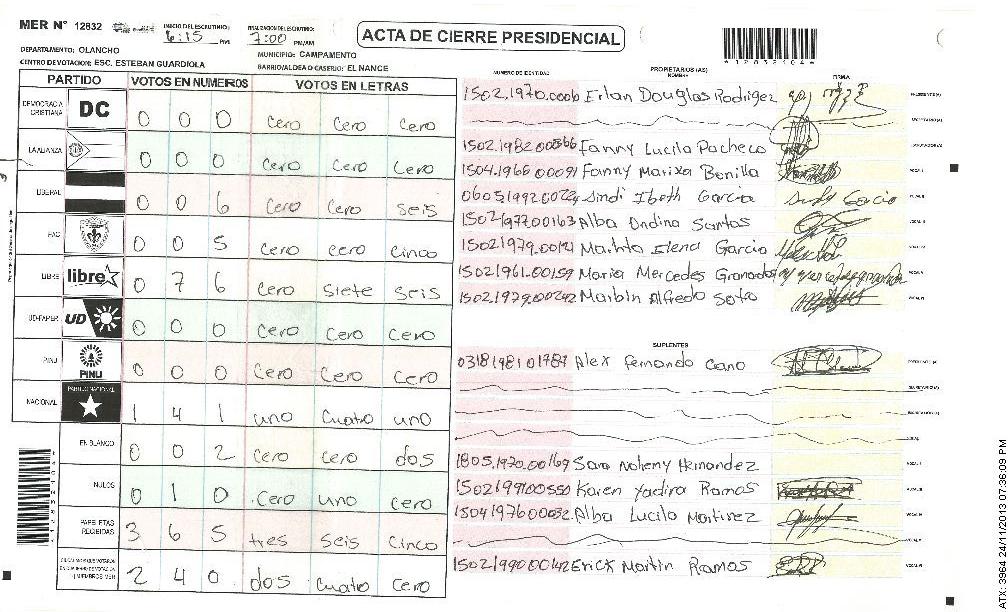 MER N° 12832
INICIO DEL ESCRUTINIO: 6:15 PM
FINALIZACION DEL ESCRUTINIO: 7:00 PM/AM
ACTA DE CIERRE PRESIDENCIAL
*12832104*
DEPARTAMENTO: OLANCHO
MUNICIPIO: CAMPAMENTO
CENTRO DE VOTACION: ESC. ESTEBAN GUARDIOLA
BARRIO/ALDEA O CASERIO: EL NANCE
PARTIDO VOTOS EN NUMEROS VOTOS EN LETRAS
DEMOCRACIA CRISTIANA DC 0 0 0 cero cero cero
LA ALIANZA 0 0 0 cero cero cero
LIBERAL 0 0 6 cero cero seis
PAC 0 0 5 cero cero cinco
LIBRE libre 0 7 6 cero siete seis
UD-FAPER UD 0 0 0 cero cero cero
PINU PINU 0 0 0 cero cero cero
NACIONAL PARTIDO NACIONAL 1 4 1 uno cuatro uno
EN BLANCO 0 0 2 cero cero dos
NULOS 0 1 0 cero uno cero
PAPELETAS RECIBIDAS 3 6 5 tres seis cinco
2 4 0 dos cuatro cero
NUMERO DE IDENTIDAD PROPIETARIOS (AS) NOMBRE FIRMA
1502.1970.0006 Erlan Douglas Rodrigez
1502.1982.00566 Fanny Lucila Pacheco
1504.1966 00091 Fanny Marixa Bonilla
Sindi Ibeth Garcia
1502197700163 Alba Ondina Santos
Martha Elena Garcia
1502.1961-00159 Maria Mercedes Granados
1502.1979.00242 Marbin Alfredo Soto
SUPLENTES
0318198101787 Alex Fernando Cano
1805.1970.00169 Sara Nohemy Hernandez
1502199100550 Karen Yadira Ramos
1504197600032 Alba Lucila Martinez
1502.1990.00142 Erick Martin Ramos
ATX: 3964 24/11/2013 07:36:09 PM